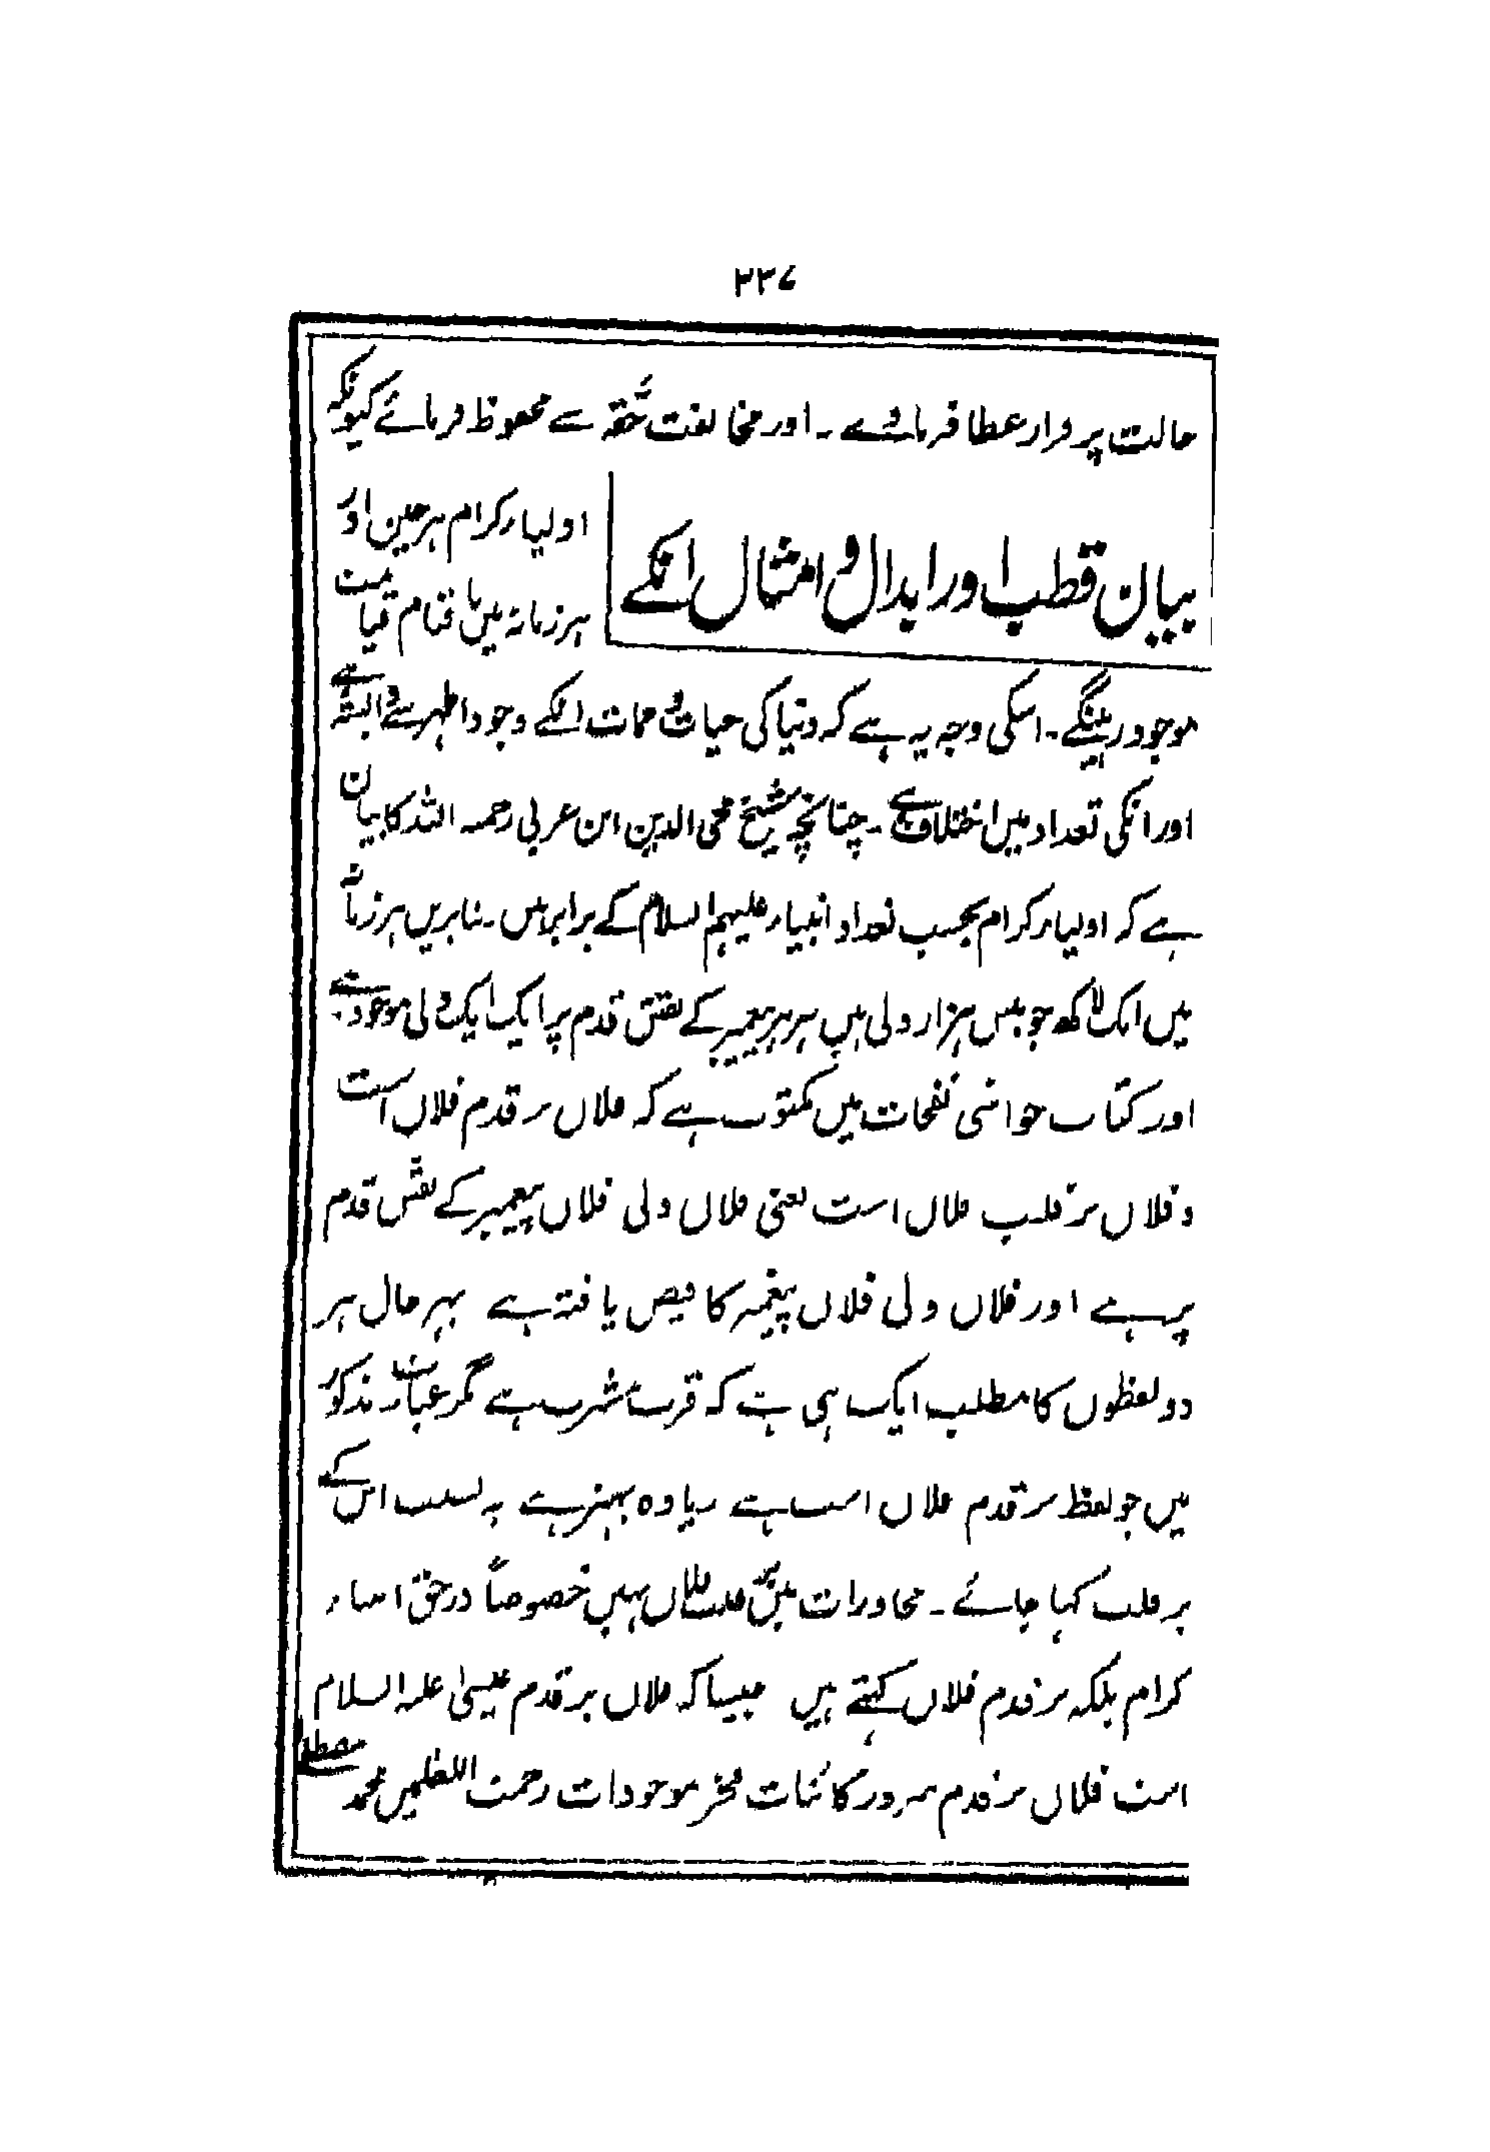 ۲۳۷
حالت پر قرار عطا فرماوے ۔ اور مخالفت حقہ سے محفوظ فرمائے کیونکہ
بیان قطب اور ابدال و امثال انکے
اولیاء کرام ہر حین اور
ہر زمانہ میں تا قیام قیامت
موجود رہینگے ۔ اسکی وجہ یہ ہے کہ دنیا کی حیات و ممات انکے وجود اطہر سے وابستہ ہے
اور انکی تعداد میں اختلاف ہے ۔ چنانچہ شیخ محی الدین ابن عربی رحمہ اللہ کا بیان
ہے کہ اولیاء کرام بحسب تعداد انبیاء علیہم السلام کے برابر ہیں ۔ بنابریں ہر زمانہ
میں ایک لاکھ چوبیس ہزار ولی ہیں ہر ہر پیغمبر کے نقش قدم پر ایک ایک ولی موجود ہے
اور کتاب حواشی نفحات میں مکتوب ہے کہ فلاں بر قدم فلاں است
و فلاں بر قلب فلاں است یعنی فلاں ولی فلاں پیغمبر کے نقش قدم
پر ہے اور فلاں ولی فلاں پیغمبر کا فیض یافتہ ہے بہر حال ہر
دو لفظوں کا مطلب ایک ہی ہے کہ قرب مشرب ہے مگر عبارت مذکور
میں جو لفظ بر قدم فلاں است ہے زیادہ بہتر ہے بہ نسبت اس کے
بر قلب کہا جائے ۔ محاورات میں بر قلب فلاں نہیں خصوصاً در حق انبیاء
کرام بلکہ بر قدم فلاں کہتے ہیں جیسا کہ فلاں بر قدم عیسیٰ علیہ السلام
است فلاں بر قدم سرور کائنات فخر موجودات رحمت اللعٰلمین محمد مصطفے